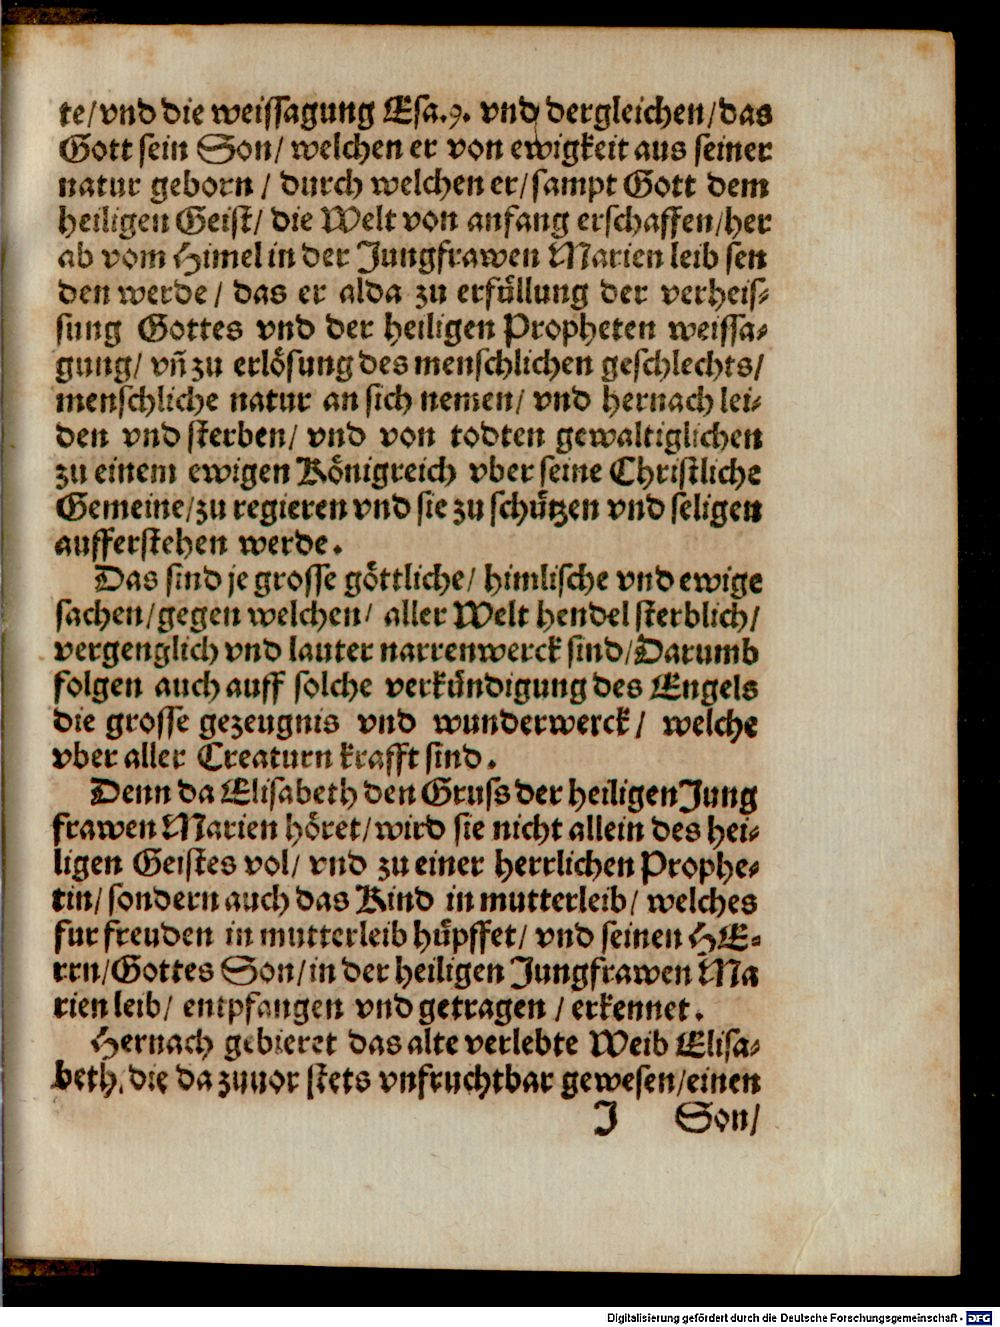 te/vnd die weissagung Esa.9. vnd dergleichen/das
Gott sein Son/ welchen er von ewigkeit aus seiner
natur geborn / durch welchen er/sampt Gott dem
heiligen Geist/ die Welt von anfang erschaffen/her
ab vom Himel in der Jungfrawen Marien leib sen
den werde / das er alda zu erfüllung der verheis-
sung Gottes vnd der heiligen Propheten weissa-
gung/ vñ zu erlösung des menschlichen geschlechts/
menschliche natur an sich nemen/ vnd hernach lei-
den vnd sterben/ vnd von todten gewaltiglichen
zu einem ewigen Königreich vber seine Christliche
Gemeine/zu regieren vnd sie zu schützen vnd seligen
aufferstehen werde.
Das sind je grosse göttliche/ himlische vnd ewige
sachen/gegen welchen/ aller Welt hendel sterblich/
vergenglich vnd lauter narrenwerck sind/Darumb
folgen auch auff solche verkündigung des Engels
die grosse gezeugnis vnd wunderwerck/ welche
vber aller Creaturn krafft sind.
Denn da Elisabeth den Gruss der heiligen Jung
frawen Marien höret/wird sie nicht allein des hei-
ligen Geistes vol/ vnd zu einer herrlichen Prophe-
tin/ sondern auch das Kind in mutterleib/ welches
fur freuden in mutterleib hüpffet/ vnd seinen HE-
rrn/Gottes Son/in der heiligen Jungfrawen Ma
rien leib/ entpfangen vnd getragen / erkennet.
Hernach gebieret das alte verlebte Weib Elisa-
beth, die da zuuor stets vnfruchtbar gewesen/einen
J Son/
Digitalisierung gefördert durch die Deutsche Forschungsgemeinschaft - DFG